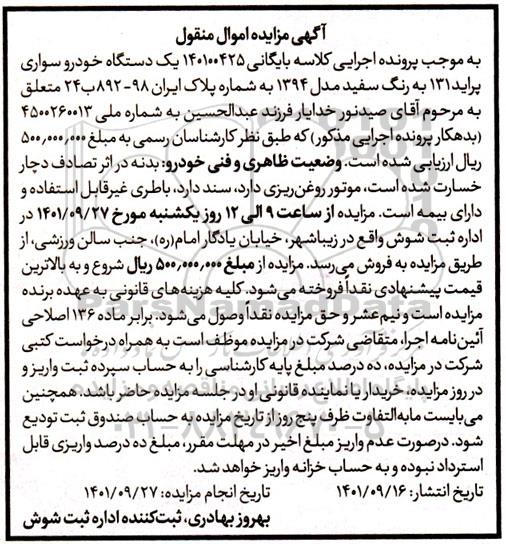 آگهی مزایده اموال منقول
به موجب پرونده اجرایی کلاسه بایگانی ۱۴۰۱۰۰۴۲۵ یک دستگاه خودرو سواری
پراید۱۳۱ به رنگ سفید مدل ۱۳۹۴ به شماره پلاک ایران ۹۸-۸۹۲ب۲۴ متعلق
به مرحوم آقای صیدنور خدایار فرزند عبدالحسین به شماره ملی ۴۵۰۰۲۶۰۰۱۳
(بدهکار پرونده اجرایی مذکور) که طبق نظر کارشناسان رسمی به مبلغ ۵۰۰,۰۰۰,۰۰۰
ریال ارزیابی شده است. وضعیت ظاهری و فنی خودرو: بدنه در اثر تصادف دچار
خسارت شده است، موتور روغن‌ریزی دارد، سند دارد، باطری غیرقابل استفاده و
دارای بیمه است. مزایده از ساعت ۹ الی ۱۲ روز یکشنبه مورخ ۱۴۰۱/۰۹/۲۷ در
اداره ثبت شوش واقع در زیباشهر، خیابان یادگار امام(ره)، جنب سالن ورزشی، از
طریق مزایده به فروش می‌رسد. مزایده از مبلغ ۵۰۰,۰۰۰,۰۰۰ ریال شروع و به بالاترین
قیمت پیشنهادی نقداً فروخته می‌شود. کلیه هزینه‌های قانونی به عهده برنده
مزایده است و نیم‌عشر و حق مزایده نقداً وصول می‌شود. برابر ماده ۱۳۶ اصلاحی
آئین‌نامه اجرا، متقاضی شرکت در مزایده موظف است به همراه درخواست کتبی
شرکت در مزایده، مبلغ ده درصد مبلغ پایه کارشناسی را به حساب سپرده ثبت واریز و
در روز مزایده، خریدار یا نماینده قانونی او در جلسه مزایده حاضر باشد، همچنین
می‌بایست مابه‌التفاوت ظرف پنج روز از تاریخ مزایده به حساب صندوق ثبت تودیع
شود. درصورت عدم واریز مبلغ اخیر در مهلت مقرر، مبلغ ده درصد واریزی قابل
استرداد نبوده و به حساب خزانه واریز خواهد شد.
تاریخ انتشار: ۱۴۰۱/۰۹/۱۶ تاریخ انجام مزایده: ۱۴۰۱/۰۹/۲۷
بهروز بهادری، ثبت‌کننده اداره ثبت شوش
ParsNamadData
۰۲۱-۸۸۳۴۹۶۷۰-۵